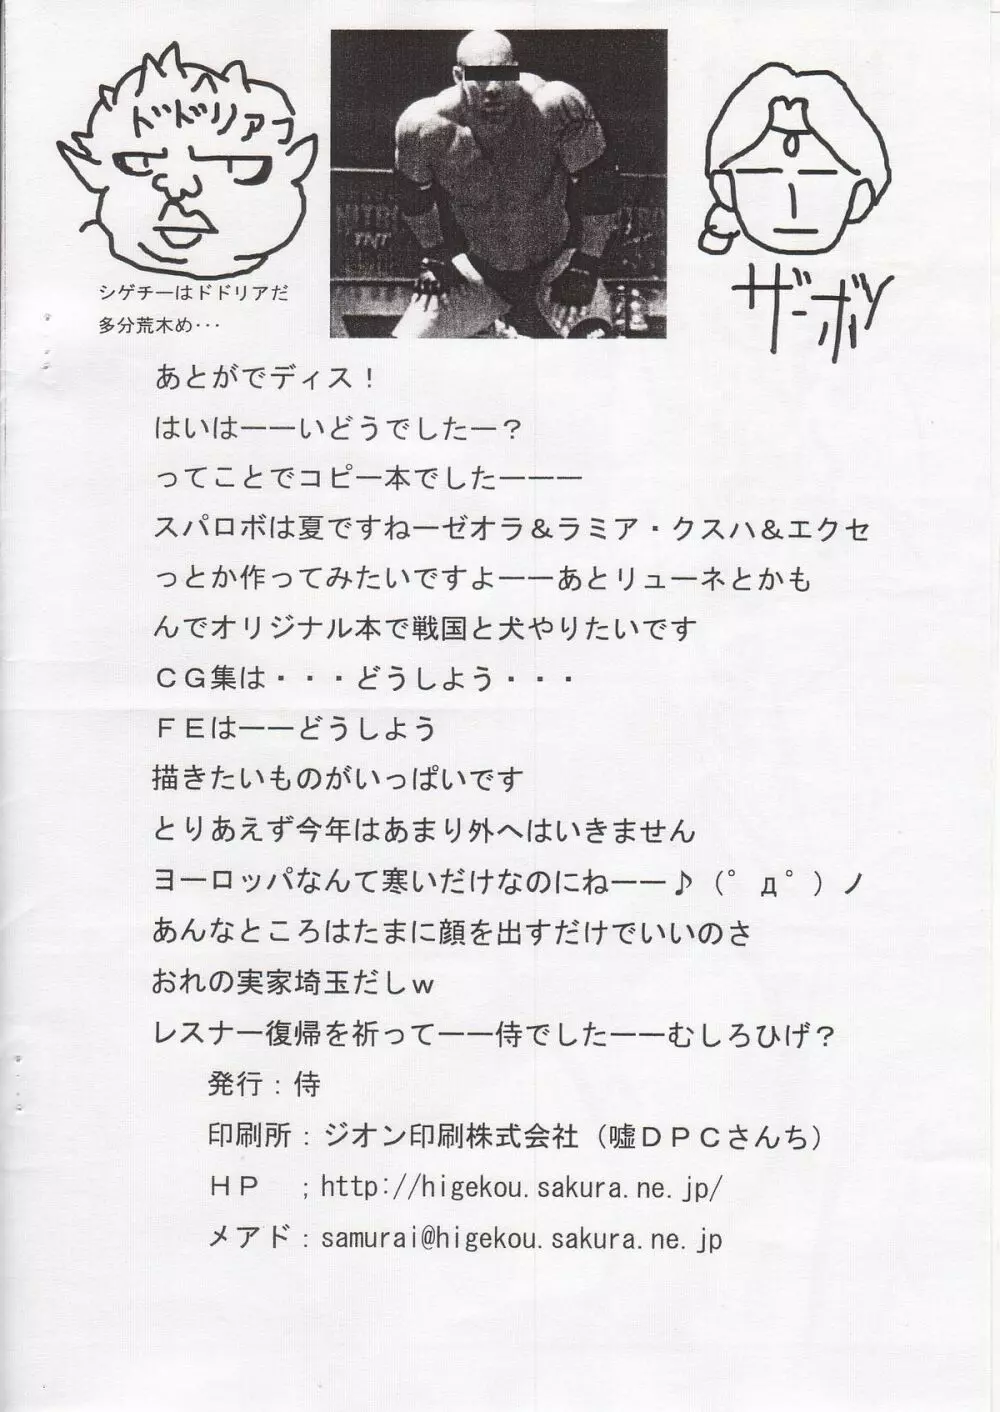 ドドリアっ
シゲチーはドドリアだ
多分荒木め・・・
NITRO
TNT
ザーボン
あとがでディス！
はいはーーいどうでしたー？
ってことでコピー本でしたーーー
スパロボは夏ですねーゼオラ＆ラミア・クスハ＆エクセ
っとか作ってみたいですよーーあとリューネとかも
んでオリジナル本で戦国と犬やりたいです
ＣＧ集は・・・どうしよう・・・
ＦＥはーーどうしよう
描きたいものがいっぱいです
とりあえず今年はあまり外へはいきません
ヨーロッパなんて寒いだけなのにねーー♪（゜д゜）ノ
あんなところはたまに顔を出すだけでいいのさ
おれの実家埼玉だしｗ
レスナー復帰を祈ってーー侍でしたーーむしろひげ？
発行：侍
印刷所：ジオン印刷株式会社（嘘ＤＰＣさんち）
ＨＰ　；http://higekou.sakura.ne.jp/
メアド：samurai@higekou.sakura.ne.jp